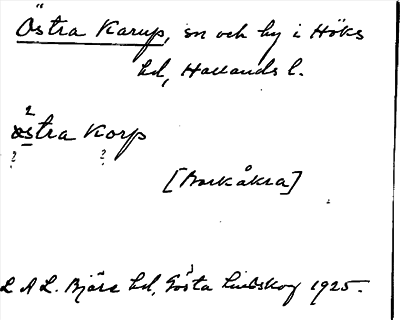 Östra Karup, sn och by i Höks
hd, Hallands l.
2
östra Korp
? ?
[Barkåkra]
L A L. Bjäre hd, Gösta Lindskog 1925.